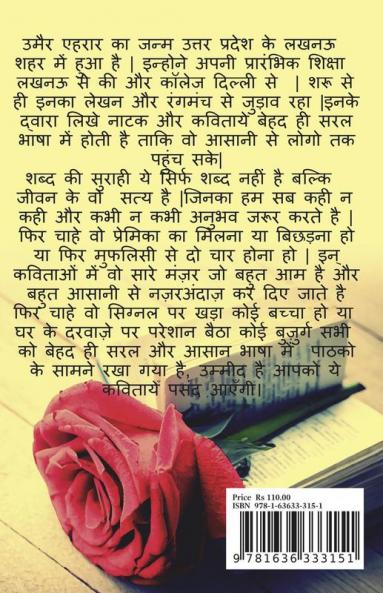 उमैर एहरार का जन्म उत्तर प्रदेश के लखनऊ
शहर में हुआ है | इन्होने अपनी प्रारंभिक शिक्षा
लखनऊ से की और कॉलेज़ दिल्ली से | शरू से
ही इनका लेखन और रंगमंच से जुड़ाव रहा |इनके
द्वारा लिखे नाटक और कवितायें बेहद ही सरल
भाषा में होती है ताकि वो आसानी से लोगो तक
पहुंच सके|
शब्द की सुराही ये सिर्फ शब्द नहीं है बल्कि
जीवन के वो सत्य है |जिनका हम सब कही न
कही और कभी न कभी अनुभव जरूर करते है |
फिर चाहे वो प्रेमिका का मिलना या बिछड़ना हो
या फिर मुफलिसी से दो चार होना हो | इन
कविताओं में वो सारे मंज़र जो बहुत आम है और
बहुत आसानी से नज़रअंदाज़ कर दिए जाते है
फिर चाहे वो सिग्नल पर खड़ा कोई बच्चा हो या
घर के दरवाज़े पर परेशान बैठा कोई बुज़ुर्ग सभी
को बेहद ही सरल और आसान भाषा में पाठको
के सामने रखा गया है, उम्मीद है आपकों ये
कवितायेँ पसंद आएँगी|
Price Rs 110.00
ISBN 978-1-63633-315-1
9 781636 333151